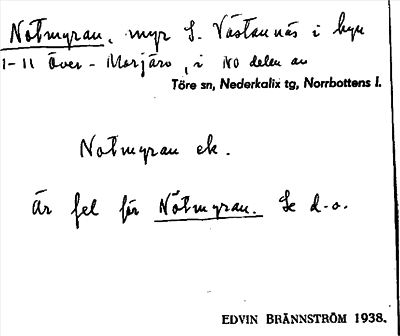 Notmyran, myr S. Västannäs i byn
1-11 Över-Morjärv, i NO delen av
Töre sn, Nederkalix tg, Norrbottens l.
Notmyran ek.
Är fel för Nötmyran. Se d.o.
EDVIN BRÄNNSTRÖM 1938.